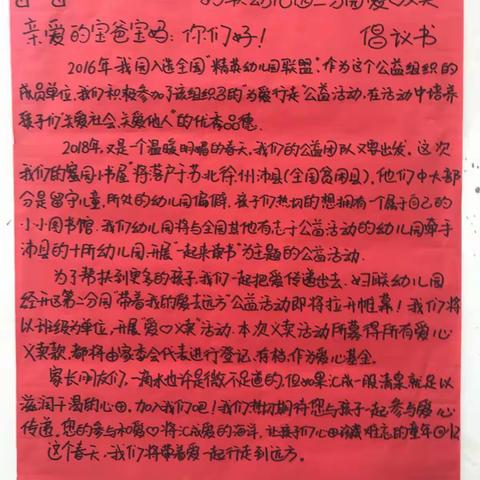 幼儿园二分园爱心义卖
亲爱的宝爸宝妈：你们好！ 倡议书
2016年我园入选全国"精英幼儿园联盟"，作为这个公益组织的
成员单位，我们积极参加了该组织的"为爱行走"公益活动，在活动中培养
孩子们"关爱社会、关爱他人"的优秀品德。
2018年，又是一个温暖明媚的春天，我们的公益团队又要出发，这次
我们的"爱园小书屋"将落户于苏北徐州沛县（全国贫困县），他们中大部
分是留守儿童，所处的幼儿园偏僻，孩子们热切的想拥有一个属于自己的
小小图书馆，我们幼儿园将与全国其他有志于公益活动的幼儿园牵手
沛县的十所幼儿园，开展"一起来读书"为主题的公益活动。
为了帮扶到更多的孩子，我们一起把爱传递出去，妇联幼儿园
经开区第二分园"带着我的爱去远方"公益活动即将拉开帷幕！我们将
以班级为单位，开展"爱♡义卖"活动，本次义卖活动所募得所有爱心
义卖款，都将由家委会代表进行登记，存档，作为爱心基金。
家长朋友们，一滴水也许是微不足道的，但如果汇成一股清泉就足以
滋润干涸的心田，加入我们吧！我们热切期待您与孩子一起参与爱心
传递，您的参与和爱♡将汇成爱的海洋，让孩子们心田珍藏难忘的童年回忆
这个春天，我们将带着爱一起行走到远方。